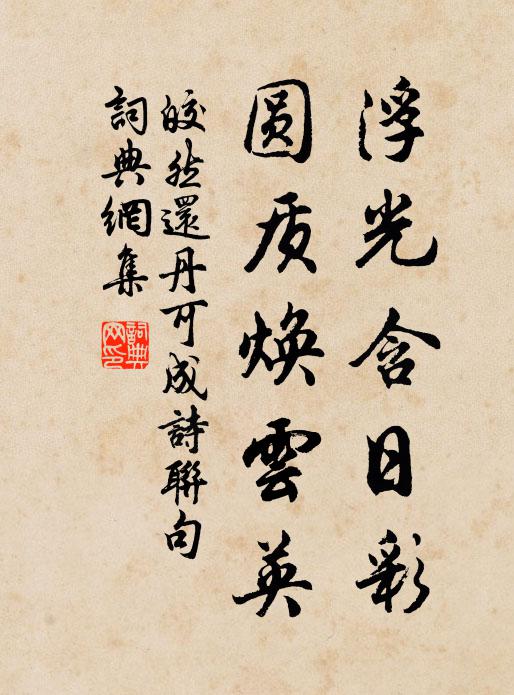 浮光含日彩
圓质焕雲英
皎然還丹可成詩聯句
詞典網集
詞典网印